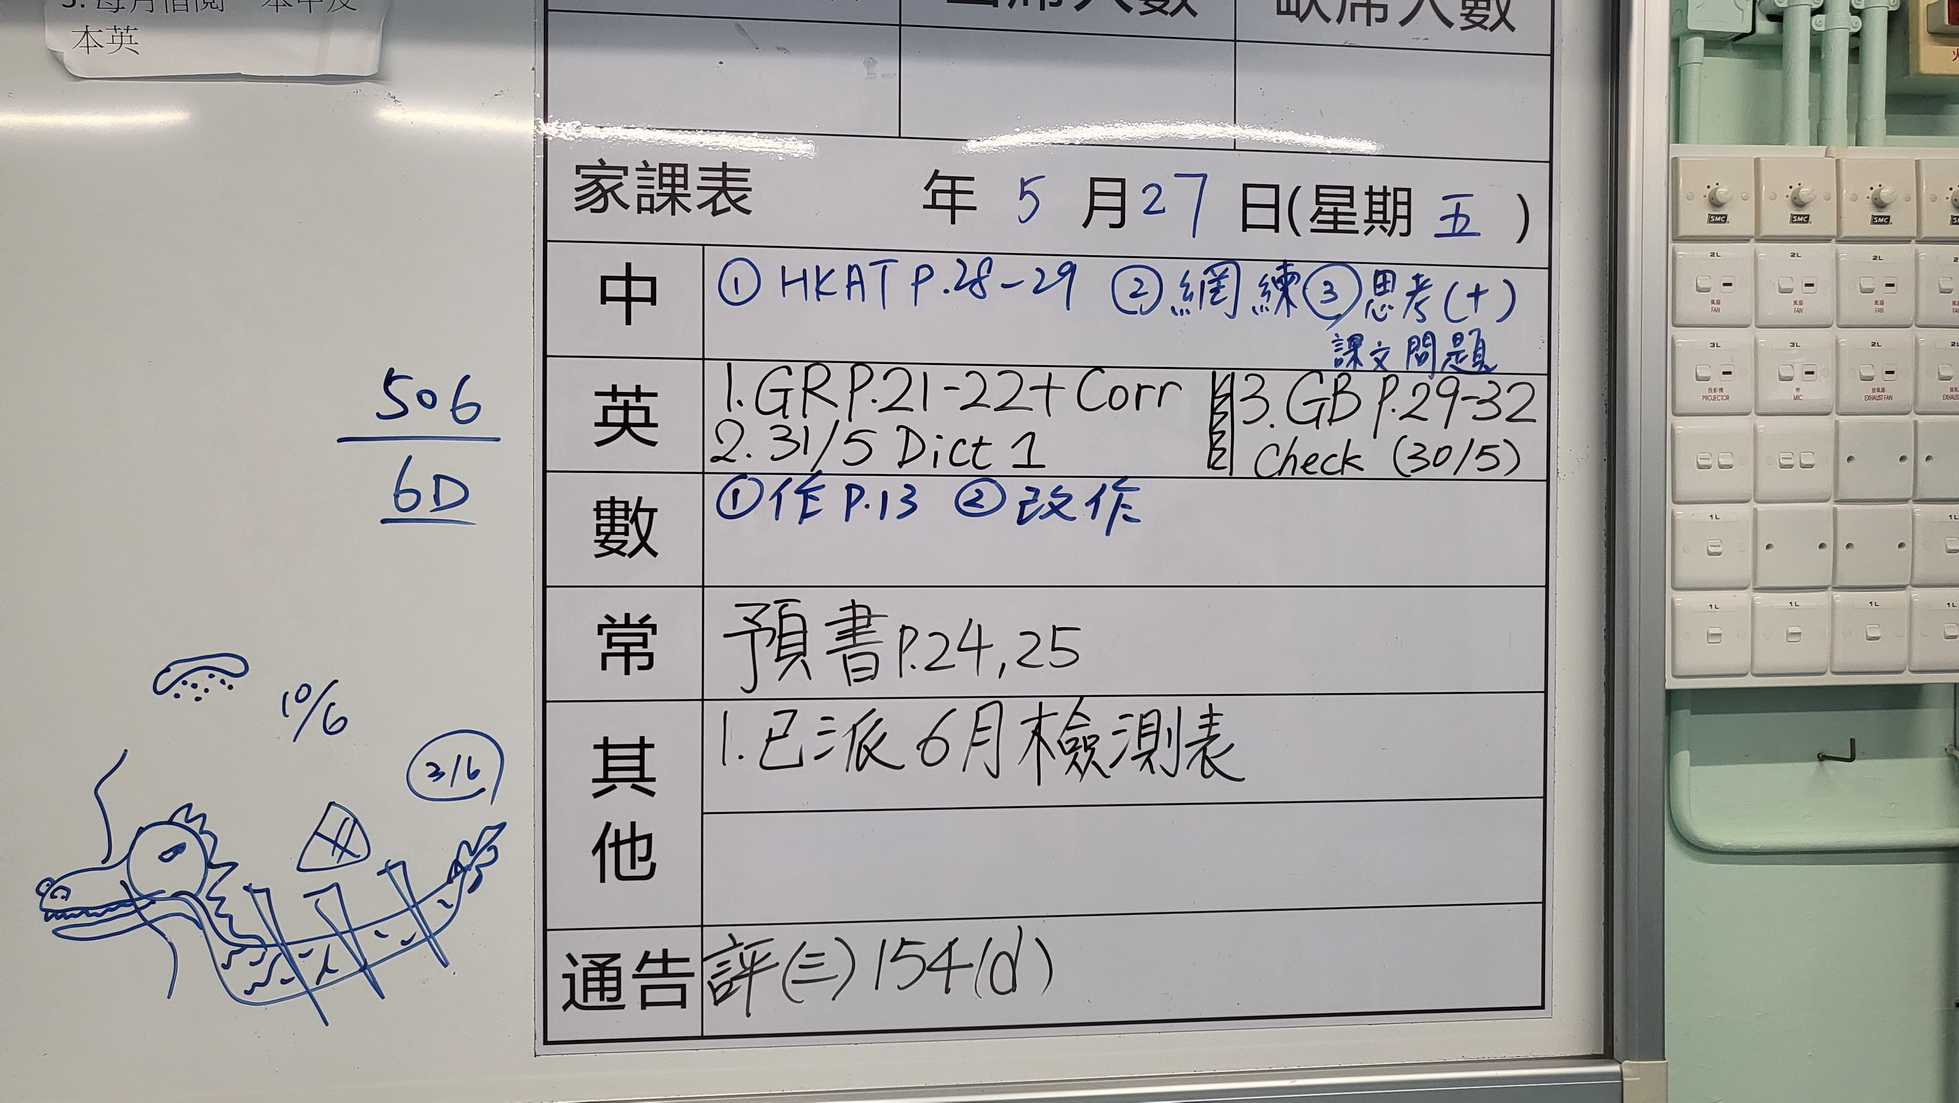 3. 每月借閱一本中及
本英
出席人數 缺席人數
家課表 年 5 月 27 日(星期 五 )
中 ① HKAT P.28-29 ② 網練 ③ 思考(十)
課文問題
英 1. GR P.21-22 + Corr 3. GB P.29-32
2. 31/5 Dict 1 Check (30/5)
數 ① 作 P.13 ② 改作
常 預書 P.24, 25
其他 1. 已派 6月檢測表
通告 評(三) 154(d)
506
6D
10/6
3/6
SMC SMC SMC
2L 2L 2L 2L
風扇 風扇 風扇
FAN FAN FAN
3L 3L 2L
投影機 咪 抽氣扇
PROJECTOR MIC EXHAUST FAN
1L 1L
1L 1L 1L 1L